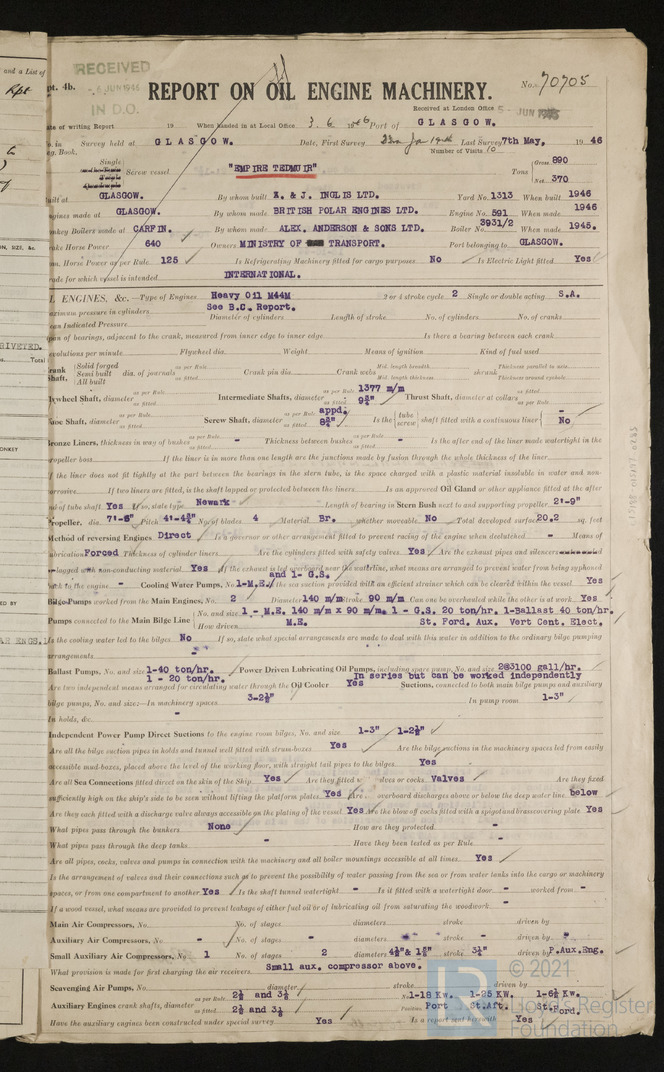 and a List of
Rpt
RECEIVED
JUN 1946
IN D.O.
pt. 4b.
REPORT ON OIL ENGINE MACHINERY.
No. 70705
Received at London Office JUN 1946
ate of writing Report 19 When handed in at Local Office 3. 6. 1946. Port of GLASGOW.
o. in Survey held at GLASGOW. Date, First Survey Last Survey 7th May, 1946
eg. Book. Number of Visits 10
Single
Triple
Quadruple
Screw vessel "EMPIRE TEDMUIR" Tons Gross 890
Net 370
uilt at GLASGOW. By whom built A. & J. INGLIS LTD. Yard No. 1313 When built 1946
ngines made at GLASGOW. By whom made BRITISH POLAR ENGINES LTD. Engine No. 591 When made 1946
onkey Boilers made at CARFIN. By whom made ALEX. ANDERSON & SONS LTD. Boiler No. 3931/2 When made 1945.
rake Horse Power 640 Owners MINISTRY OF TRANSPORT. Port belonging to GLASGOW.
om. Horse Power as per Rule 125 Is Refrigerating Machinery fitted for cargo purposes No Is Electric Light fitted Yes
rade for which vessel is intended INTERNATIONAL.
L ENGINES, &c. —Type of Engines Heavy Oil M44M 2 or 4 stroke cycle 2 Single or double acting S.A.
See B.C. Report.
aximum pressure in cylinders Diameter of cylinders Length of stroke No. of cylinders No. of cranks
ean Indicated Pressure
pan of bearings, adjacent to the crank, measured from inner edge to inner edge Is there a bearing between each crank
evolutions per minute Flywheel dia. Weight Means of ignition Kind of fuel used
rank Shaft, Solid forged Semi built All built dia. of journals as per Rule as fitted Crank pin dia. Crank webs Mid. length breadth Mid. length thickness shrunk Thickness parallel to axis Thickness around eyehole
lywheel Shaft, diameter as per Rule as fitted Intermediate Shafts, diameter as per Rule 1377 m/m as fitted 9¾" Thrust Shaft, diameter at collars as per Rule as fitted
ube Shaft, diameter as per Rule as fitted Screw Shaft, diameter as per Rule appd. as fitted 8¾" Is the tube screw shaft fitted with a continuous liner - No
ronze Liners, thickness in way of bushes as per Rule as fitted - Thickness between bushes as per Rule as fitted - Is the after end of the liner made watertight in the
ropeller boss If the liner is in more than one length are the junctions made by fusion through the whole thickness of the liner
f the liner does not fit tightly at the part between the bearings in the stern tube, is the space charged with a plastic material insoluble in water and non-
orrosive If two liners are fitted, is the shaft lapped or protected between the liners Is an approved Oil Gland or other appliance fitted at the after
nd of tube shaft Yes If so, state type Newark Length of bearing in Stern Bush next to and supporting propeller 2'-9"
ropeller, dia. Pitch No. of blades 4 Material Br. whether moveable No Total developed surface 20.2 sq. feet
ethod of reversing Engines Direct Is a governor or other arrangement fitted to prevent racing of the engine when declutched - Means of
ubrication Forced Thickness of cylinder liners Are the cylinders fitted with safety valves Yes Are the exhaust pipes and silencers
lagged with non-conducting material Yes If the exhaust is led overboard near the waterline, what means are arranged to prevent water from being syphoned
back to the engine - Cooling Water Pumps, No. 1-M.E. and 1- G.S. Is the sea suction provided with an efficient strainer which can be cleared within the vessel Yes
Bilge Pumps worked from the Main Engines, No. 2 Diameter 140 m/m Stroke 90 m/m Can one be overhauled while the other is at work Yes
Pumps connected to the Main Bilge Line No. and size 1 - M.E. 140 m/m x 90 m/m. 1 - G.S. 20 ton/hr. 1-Ballast 40 ton/hr.
How driven M.E. St. Ford. Aux. Vert Cent. Elect.
Is the cooling water led to the bilges No If so, state what special arrangements are made to deal with this water in addition to the ordinary bilge pumping
arrangements
Ballast Pumps, No. and size 1-40 ton/hr. 1 - 20 ton/hr. Power Driven Lubricating Oil Pumps, including spare pump, No. and size 2@3100 gall/hr.
In series but can be worked independently
Are two independent means arranged for circulating water through the Oil Cooler Yes Suctions, connected to both main bilge pumps and auxiliary
bilge pumps, No. and size:—In machinery spaces 3-2½" In pump room 1-3"
In holds, &c. -
Independent Power Pump Direct Suctions to the engine room bilges, No. and size 1-3" 1-2½"
Are all the bilge suction pipes in holds and tunnel well fitted with strum-boxes Yes Are the bilge suctions in the machinery spaces led from easily
accessible mud-boxes, placed above the level of the working floor, with straight tail pipes to the bilges Yes
Are all Sea Connections fitted direct on the skin of the Ship Yes Are they fitted valves or cocks Valves Are they fixed
sufficiently high on the ship's side to be seen without lifting the platform plates Yes Are overboard discharges above or below the deep water line below
Are they each fitted with a discharge valve always accessible on the plating of the vessel Yes Are the blow off cocks fitted with a spigot and brass covering plate Yes
What pipes pass through the bunkers None How are they protected -
What pipes pass through the deep tanks - Have they been tested as per Rule -
Are all pipes, cocks, valves and pumps in connection with the machinery and all boiler mountings accessible at all times Yes
Is the arrangement of valves and their connections such as to prevent the possibility of water passing from the sea or from water tanks into the cargo or machinery
spaces, or from one compartment to another Yes Is the shaft tunnel watertight - Is it fitted with a watertight door - worked from -
If a wood vessel, what means are provided to prevent leakage of either fuel oil or of lubricating oil from saturating the woodwork -
Main Air Compressors, No. No. of stages diameters stroke driven by
Auxiliary Air Compressors, No. - No. of stages - diameters - stroke - driven by -
Small Auxiliary Air Compressors, No. 1 No. of stages 2 diameters stroke 3¼" driven by P.Aux.Eng.
What provision is made for first charging the air receivers Small aux. compressor above.
Scavenging Air Pumps, No. diameter stroke driven by
Auxiliary Engines crank shafts, diameter as per Rule 2½ and 3⅛ as fitted 2½ and 3⅛ No. 1-18 Kw. 1-25 KW. 1-6½ Kw.
Position Port St.Aft. St.Ford.
Have the auxiliary engines been constructed under special survey Yes Is a report sent herewith Yes
© 2021
Lloyd's Register
Foundation